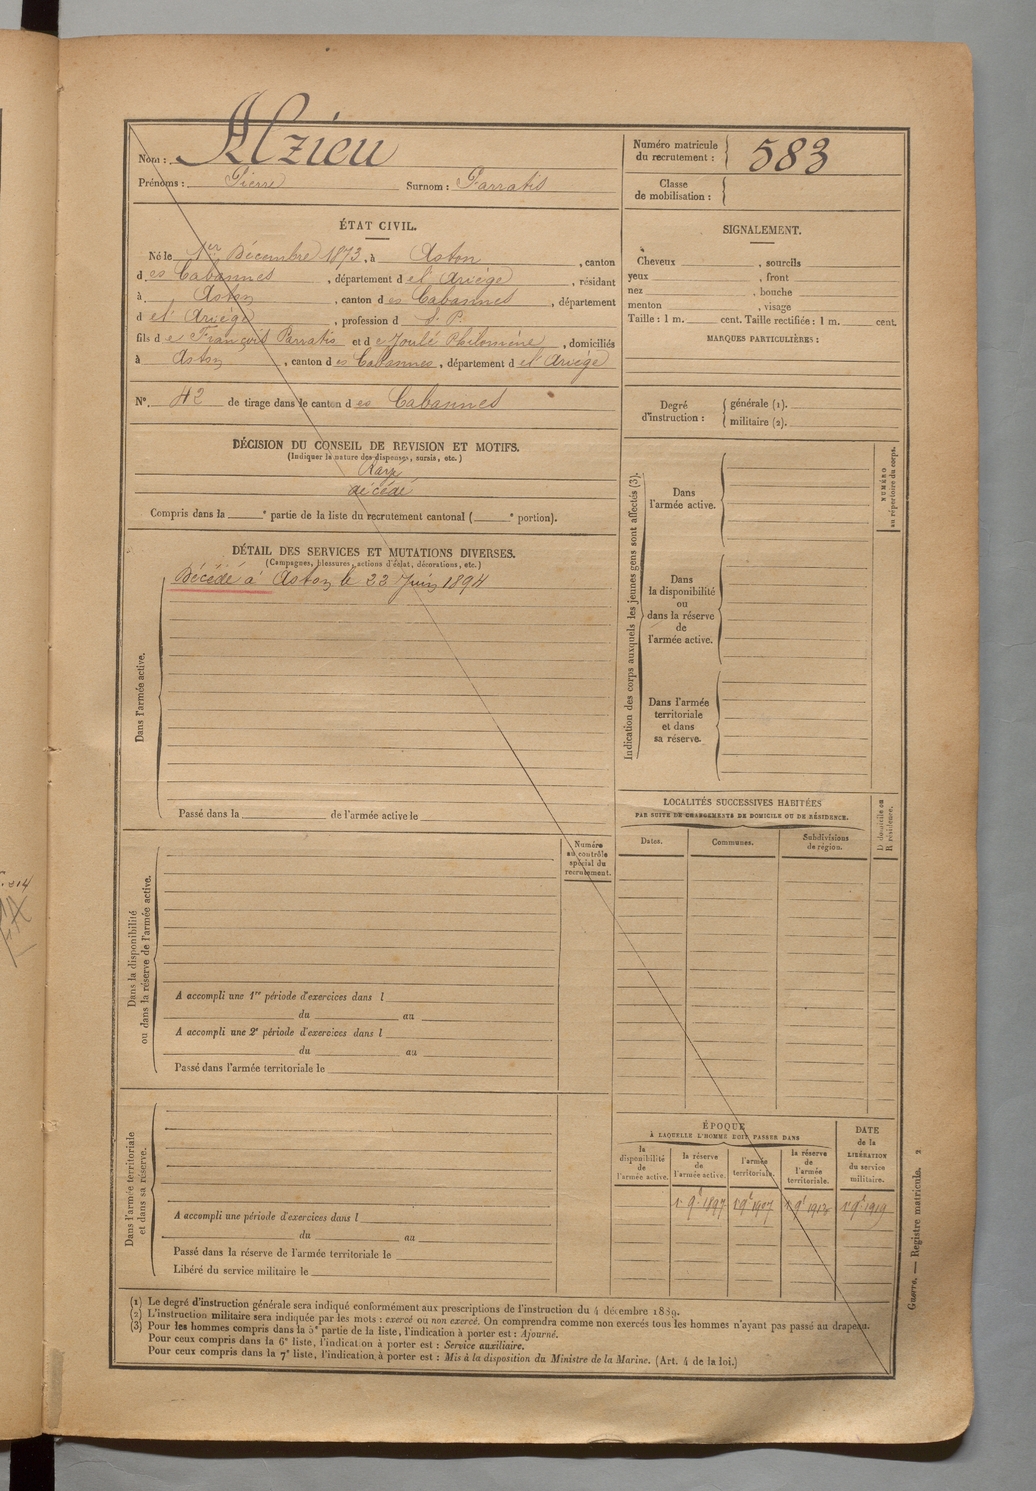 Nom : Alzieu
Prénoms : Pierre Surnom : Parratis
Numéro matricule du recrutement : 583
Classe de mobilisation :
ÉTAT CIVIL.
Né le 1er Décembre 1873, à Aston, canton
des Cabannes, département de l'Ariège, résidant
à Aston, canton des Cabannes, département
de l'Ariège, profession d S. P.
fils de François Parratis et de Joulé Philomène, domiciliés
à Aston, canton des Cabannes, département de l'Ariège
N° 42 de tirage dans le canton des Cabannes
DÉCISION DU CONSEIL DE REVISION ET MOTIFS.
(Indiquer la nature des dispenses, sursis, etc.)
Rayé
décédé
Compris dans la e partie de la liste du recrutement cantonal ( e portion).
DÉTAIL DES SERVICES ET MUTATIONS DIVERSES.
(Campagnes, blessures, actions d'éclat, décorations, etc.)
Dans l'armée active.
Décédé à Aston le 23 Juin 1894
Passé dans la de l'armée active le
Numéro au contrôle spécial du recrutement.
Dans la disponibilité
ou dans la réserve de l'armée active.
A accompli une 1re période d'exercices dans l
du au
A accompli une 2e période d'exercices dans l
du au
Passé dans l'armée territoriale le
Dans l'armée territoriale
et dans sa réserve.
A accompli une période d'exercices dans l
du au
Passé dans la réserve de l'armée territoriale le
Libéré du service militaire le
SIGNALEMENT.
Cheveux , sourcils
yeux , front
nez , bouche
menton , visage
Taille : 1 m. cent. Taille rectifiée : 1 m. cent.
MARQUES PARTICULIÈRES :
Degré d'instruction : générale (1).
militaire (2).
Indication des corps auxquels les jeunes gens sont affectés (3).
NUMÉRO
au répertoire du corps.
Dans
l'armée active.
Dans
la disponibilité
ou
dans la réserve
de
l'armée active.
Dans l'armée
territoriale
et dans
sa réserve.
LOCALITÉS SUCCESSIVES HABITÉES
PAR SUITE DE CHANGEMENTS DE DOMICILE OU DE RÉSIDENCE.
Dates. Communes. Subdivisions de région.
D domicile ou
R résidence.
ÉPOQUE
À LAQUELLE L'HOMME DOIT PASSER DANS
DATE de la LIBÉRATION du service militaire.
la disponibilité de l'armée active. la réserve de l'armée active. l'armée territoriale. la réserve de l'armée territoriale.
1897 1907 1919
(1) Le degré d'instruction générale sera indiqué conformément aux prescriptions de l'instruction du 4 décembre 1889.
(2) L'instruction militaire sera indiquée par les mots : exercé ou non exercé. On comprendra comme non exercés tous les hommes n'ayant pas passé au drapeau.
(3) Pour les hommes compris dans la 5e partie de la liste, l'indication à porter est : Ajourné.
Pour ceux compris dans la 6e liste, l'indication à porter est : Service auxiliaire.
Pour ceux compris dans la 7e liste, l'indication à porter est : Mis à la disposition du Ministre de la Marine. (Art. 4 de la loi.)
Guerre. — Registre matricule. 2